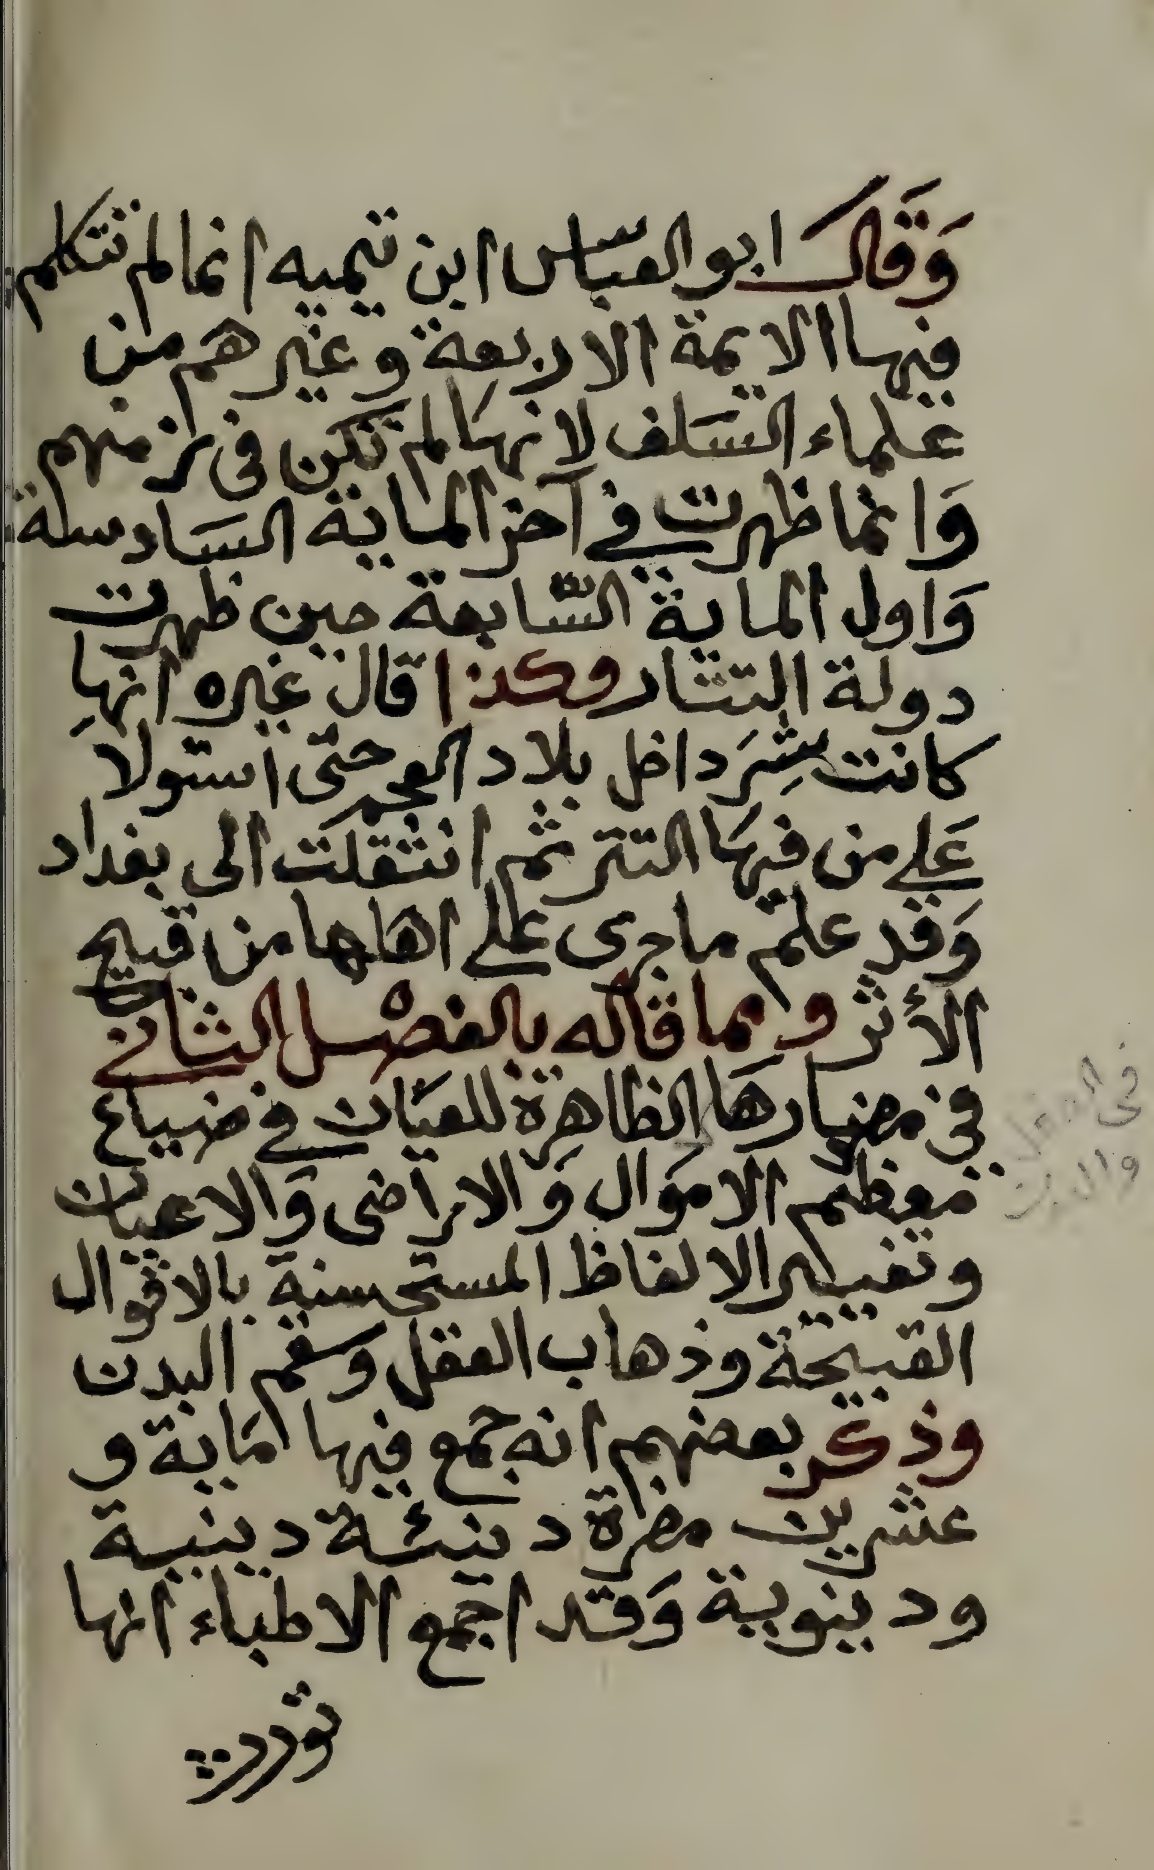 وَقَال ابو العباس ابن تيميه انما لم تتكلم
فيها الايمة الاربعة وغيرهم من
علماء السَلف لانهَا لم تكن فى زمنهم
وَانما ظهرت في آخر الماية السَادسة
وَاول الماية السَّابعة حين ظهرت
دولة التتار وكذا قال غيره انهَا
كانت شِرَ داخل بلاد العجم حتى استولا
عَلي من فيهَا التتر ثم انتقلت الى بغداد
وَقد علم ما جرى علي اهلها من قبيح
الأثر ومما قاله بالفصْل الثاني
في مضارهَا الظاهِرة للعيَان في ضياع
معظم الاموَال وَالاراضى وَالاعيان
وتغيير الالفاظ المستحسنة بالاقوال
القبيحة وذهاب العقل وسقم البدن
وذكر بعضهم انه جمع فيها مَاية و
عشرين مضرة دينئة دينية
ودينوية وَقد اجمع الاطباء انها
تورد
فى العقل
والدين